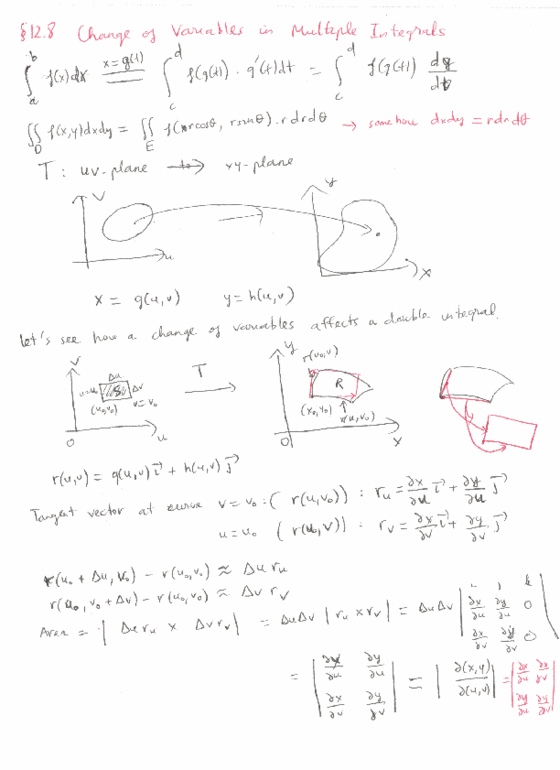 §12.8 Change of Variables in Multiple Integrals
∫_a^b f(x)dx = (x=g(t)) ∫_c^d f(g(t)) · g'(t)dt = ∫_c^d f(g(t)) dg/dt
∬_D f(x,y)dxdy = ∬_E f(rcosθ, rsinθ). rdrdθ → somehow dxdy = rdrdθ
T : uv-plane → xy-plane
v
y
u
x
x = g(u,v) y = h(u,v)
let's see how a change of variables affects a double integral.
v Δu T y r(u₀,v)
u=u₀ Δv R
(u₀,v₀) v=v₀ (x₀,y₀) r(u,v₀)
0 u 0 x
r(u,v) = g(u,v) i⃗ + h(u,v) j⃗
Tangent vector at curve v = v₀ : ( r(u,v₀)) : r_u = ∂x/∂u i⃗ + ∂y/∂u j⃗
u = u₀ ( r(u₀,v)) : r_v = ∂x/∂v i⃗ + ∂y/∂v j⃗
r(u₀ + Δu, v₀) − r(u₀,v₀) ≈ Δu r_u
r(u₀, v₀ + Δv) − r(u₀,v₀) ≈ Δv r_v
Area = | Δu r_u × Δv r_v | = ΔuΔv | r_u × r_v | = ΔuΔv | i j k ; ∂x/∂u ∂y/∂u 0 ; ∂x/∂v ∂y/∂v 0 |
= | ∂x/∂u ∂y/∂u ; ∂x/∂v ∂y/∂v | = | ∂(x,y)/∂(u,v) | = | ∂x/∂u ∂x/∂v ; ∂y/∂u ∂y/∂v |